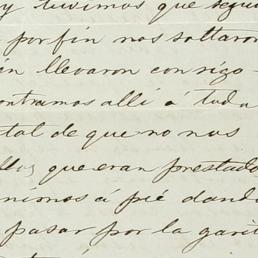 y tuvimos que segui
por fin nos soltaron
én llevaron con rigo-
ontramos allí á toda
tal de que no nos
llos que eran prestado
nimos á pié dando
pasar por la garit